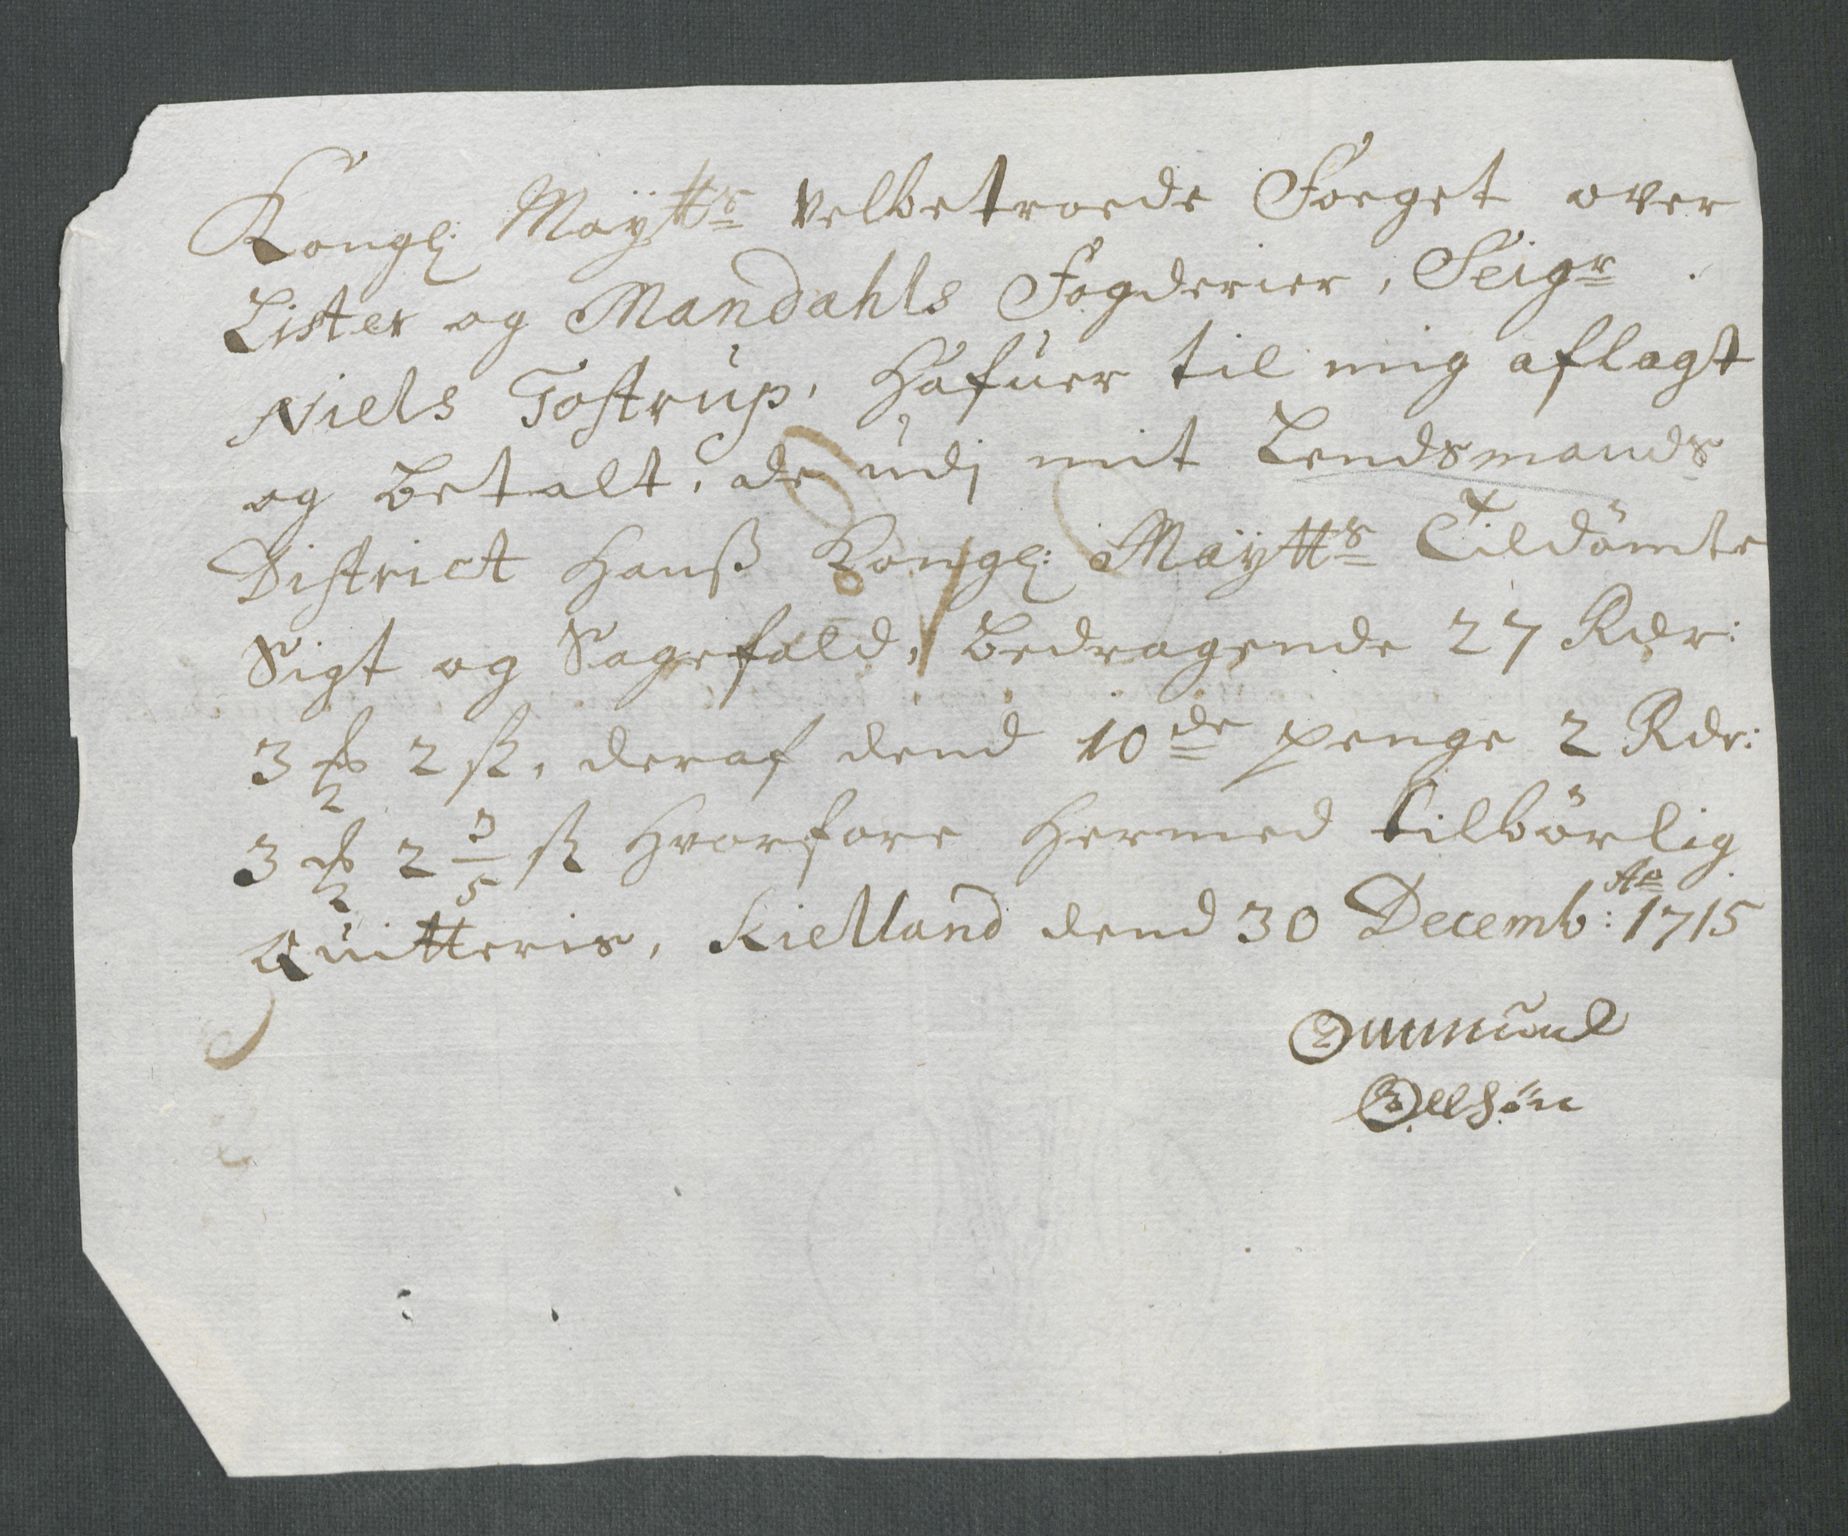 Kongl: Maÿtts Velbetroede Foeget over
Lister og Mandahls Fogderier, Seigr
Niels Tostrup, Hafuer til mig aflagt
og betalt, de udj mit Lendsmands
District Hanß Kongl: Maÿtts Tildömte
Sigt og Sagefald, bedragende 27 Rdr:
3 2 ß, deraf dend 10de penge 2 Rdr:
3 2 3/5 ß hvorfore hermed tilbörlig
Quitteris, Kielland dend 30 Decemb: Ao 1715
Ommund
Ollsön